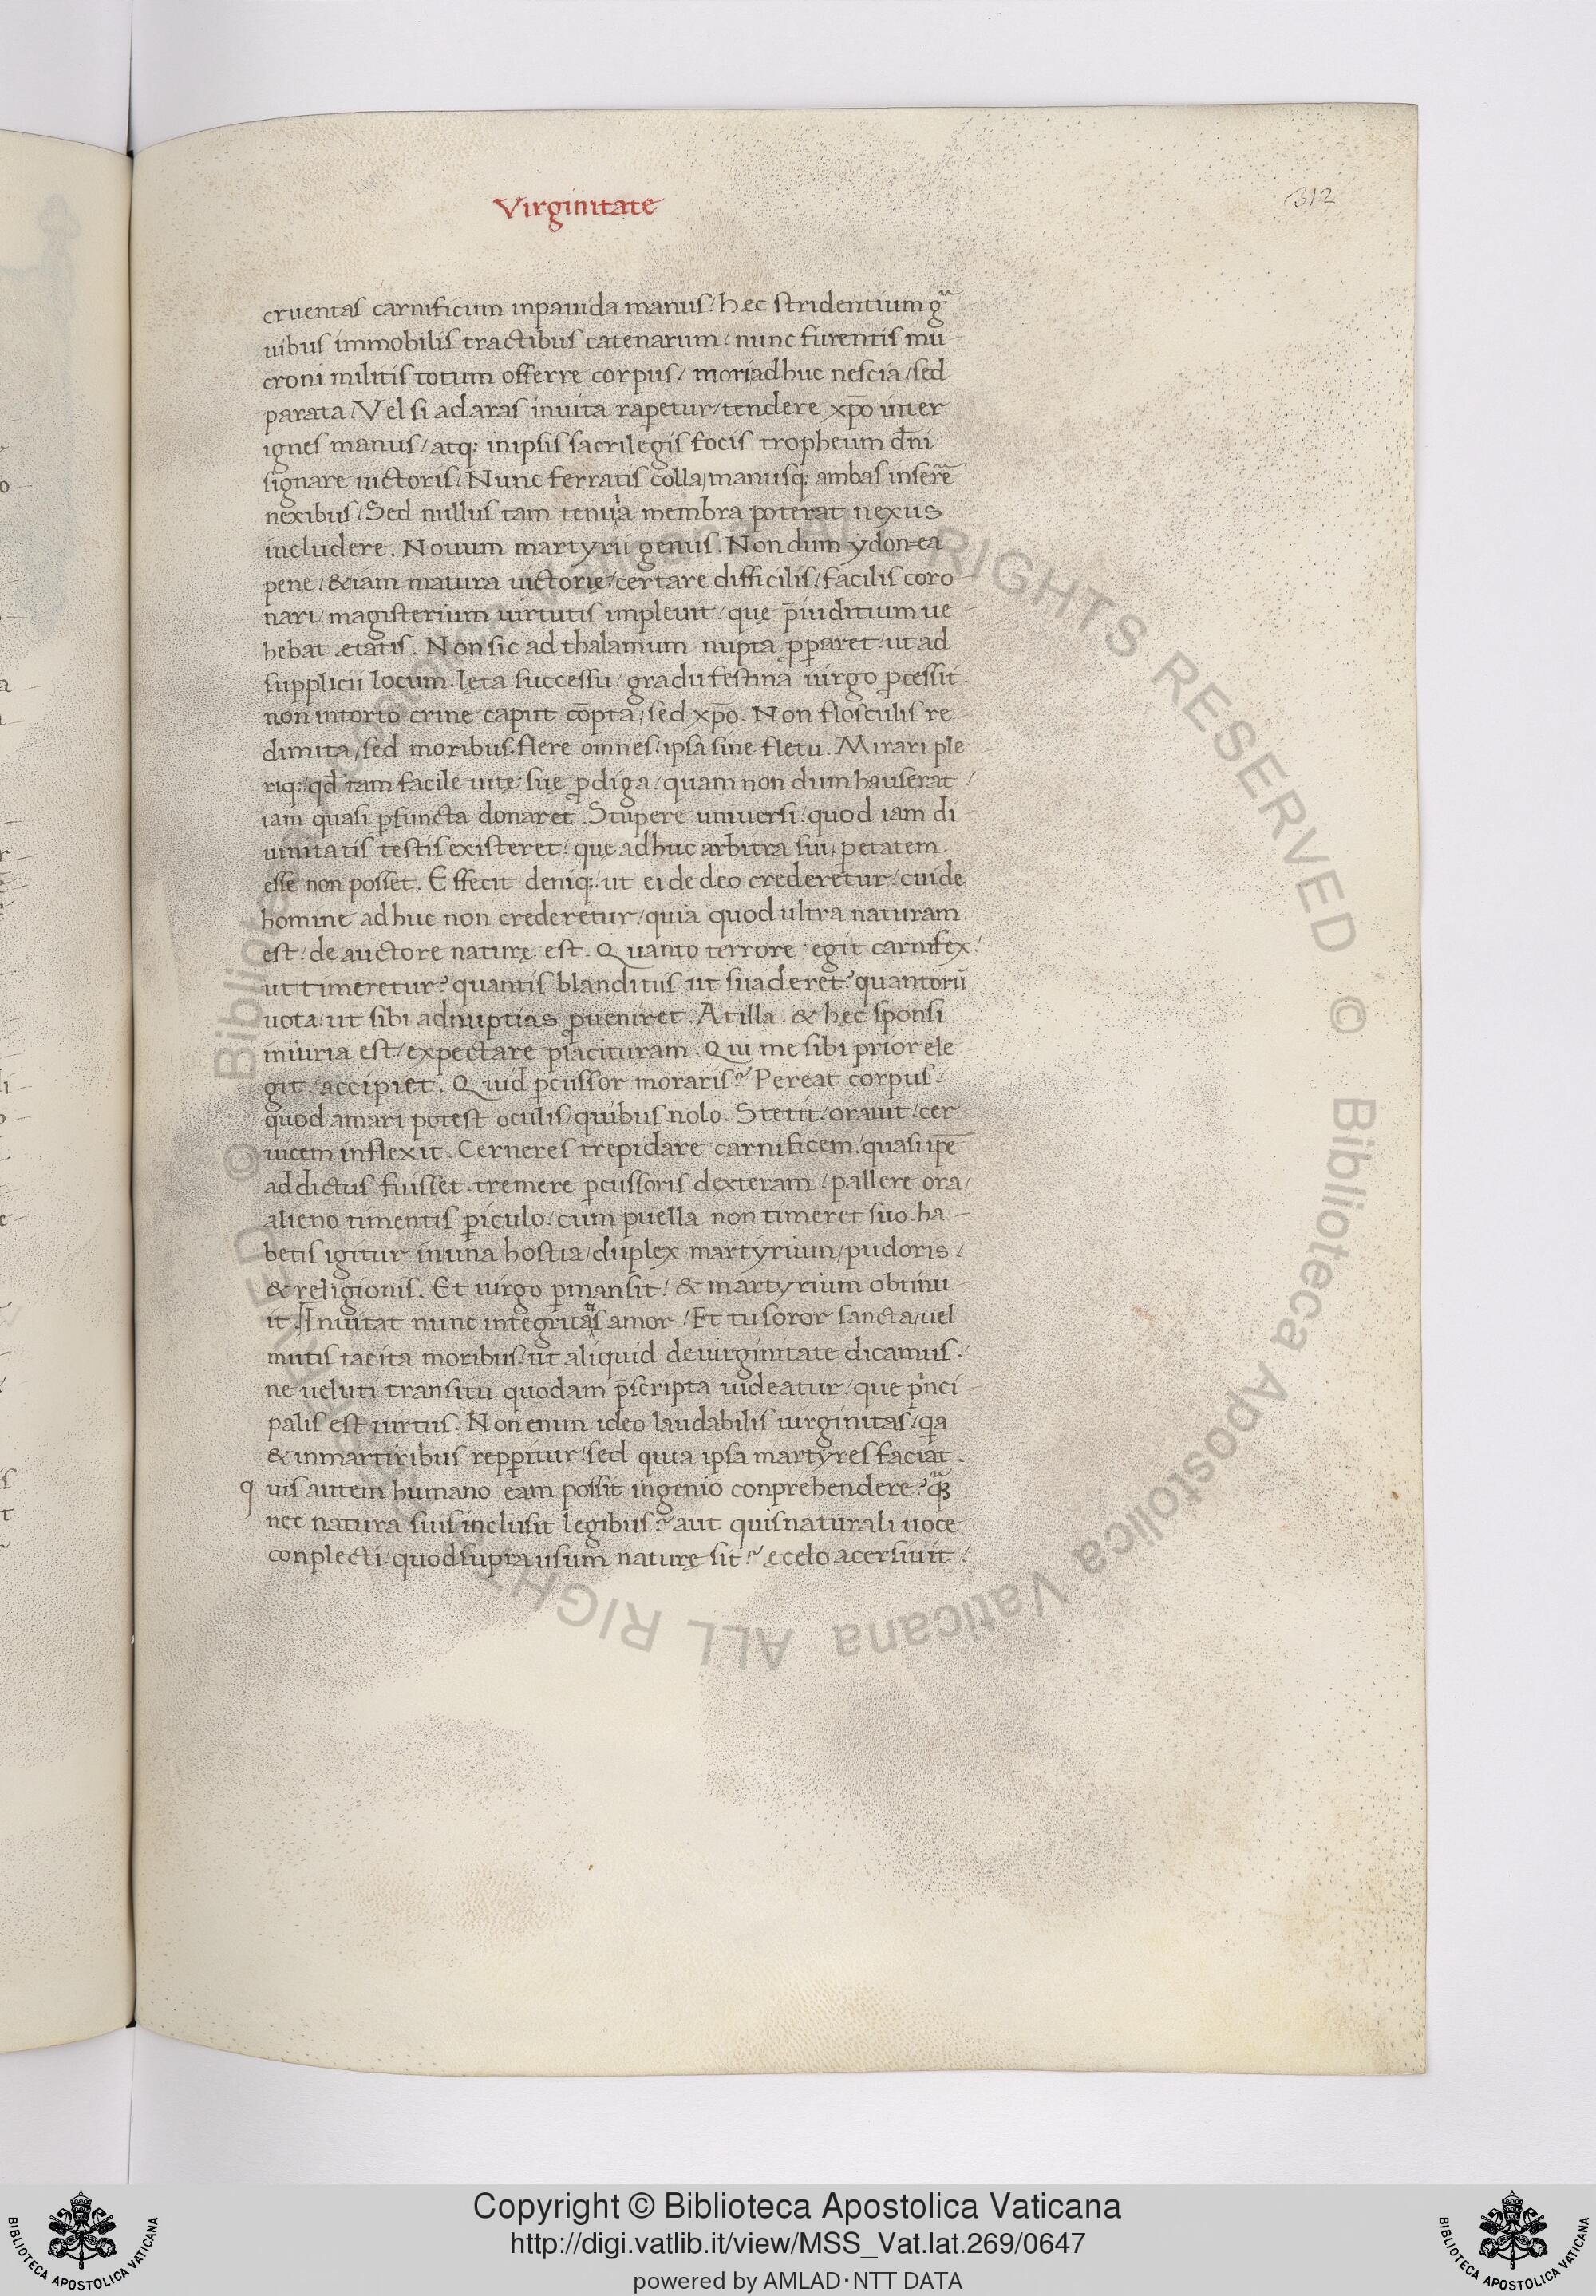 Virginitate
312
cruentas carnificum inpauida manus / hec stridentium gᵃ
uibus immobilis tractibus catenarum / nunc furentis mu-
croni militis totum offerre corpus / mori adhuc nescia / sed
parata / Vel si ad aras inuita rapetur / tendere xp̄o inter
ignes manus / atq; in ipsis sacrilegis focis tropheum dn̄i
signare uictoris / Nunc ferratis colla / manusq; ambas inserē
nexibus / Sed nullus tam tenuia membra poterat nexus
includere . Nouum martyrii genus . Non dum ydonea
pene / & iam matura uictorię / certare difficilis / facilis coro-
nari / magisterium uirtutis impleuit / quę p̄iuditium ue
hebat etatis . Non sic ad thalamum nupta ꝓꝑaret / ut ad
supplicii locum . lęta successu / gradu festina uirgo ꝓcessit .
non intorto crine caput cōpta / sed xp̄o . Non flosculis re
dimita / sed moribus . flere omnes / ipsa sine fletu . Mirari ple
riq; / qd̄ tam facile uitę suę ꝓdiga / quam non dum hauserat /
iam quasi ꝑfuncta donaret . Stupere uniuersi . quod iam di
uinitatis testis existeret / que adhuc arbitra sui , ꝑ etatem
esse non posset . Effecit deniq; / ut ei de deo crederetur / cui de
homine adhuc non crederetur / quia quod ultra naturam
est / de auctore naturę est . Quanto terrore egit carnifex /
ut timeretur ? quantis blanditiis ut suaderet ? quantorū
uota / ut sibi ad nuptias ꝓueniret . At illa . & hęc sponsi
iniuria est / expectare placituram . Qui me sibi prior ele
git / accipiet . Quid ꝑcussor moraris ? Pereat corpus /
quod amari potest oculis / quibus nolo . Stetit / orauit / cer
uicem inflexit . Cerneres trepidare carnificem / quasi ip̄e
addictus fuisset . tremere ꝑcussoris dexteram / pallere ora /
alieno timentis ꝑiculo / cum puella non timeret suo . ha-
betis igitur in una hostia / duplex martyrium / pudoris /
& religionis . Et uirgo ꝑmansit / & martyrium obtinu-
it . Inuitat nunc integritatis amor / Et tu soror sancta / uel
mutis tacita moribus / ut aliquid de uirginitate dicamus /
ne ueluti transitu quodam p̄scripta uideatur / que pⁱnci
palis est uirtus . Non enim ideo laudabilis uirginitas / qᵃ
& in martiribus repꝑitur / sed quia ipsa martyres faciat .
q uis autem humano eam possit ingenio conprehendere ? qᵃꝫ
nec natura suis inclusit legibus ? aut quis naturali uoce
conplecti / quod supra usum naturę sit ? ę celo acersiuit /
Copyright © Biblioteca Apostolica Vaticana
http://digi.vatlib.it/view/MSS_Vat.lat.269/0647
powered by AMLAD·NTT DATA
BIBLIOTECA APOSTOLICA VATICANA
BIBLIOTECA APOSTOLICA VATICANA
© Biblioteca Apostolica Vaticana ALL RIGHTS RESERVED © Biblioteca Apostolica Vaticana ALL RIGHTS RESERVED